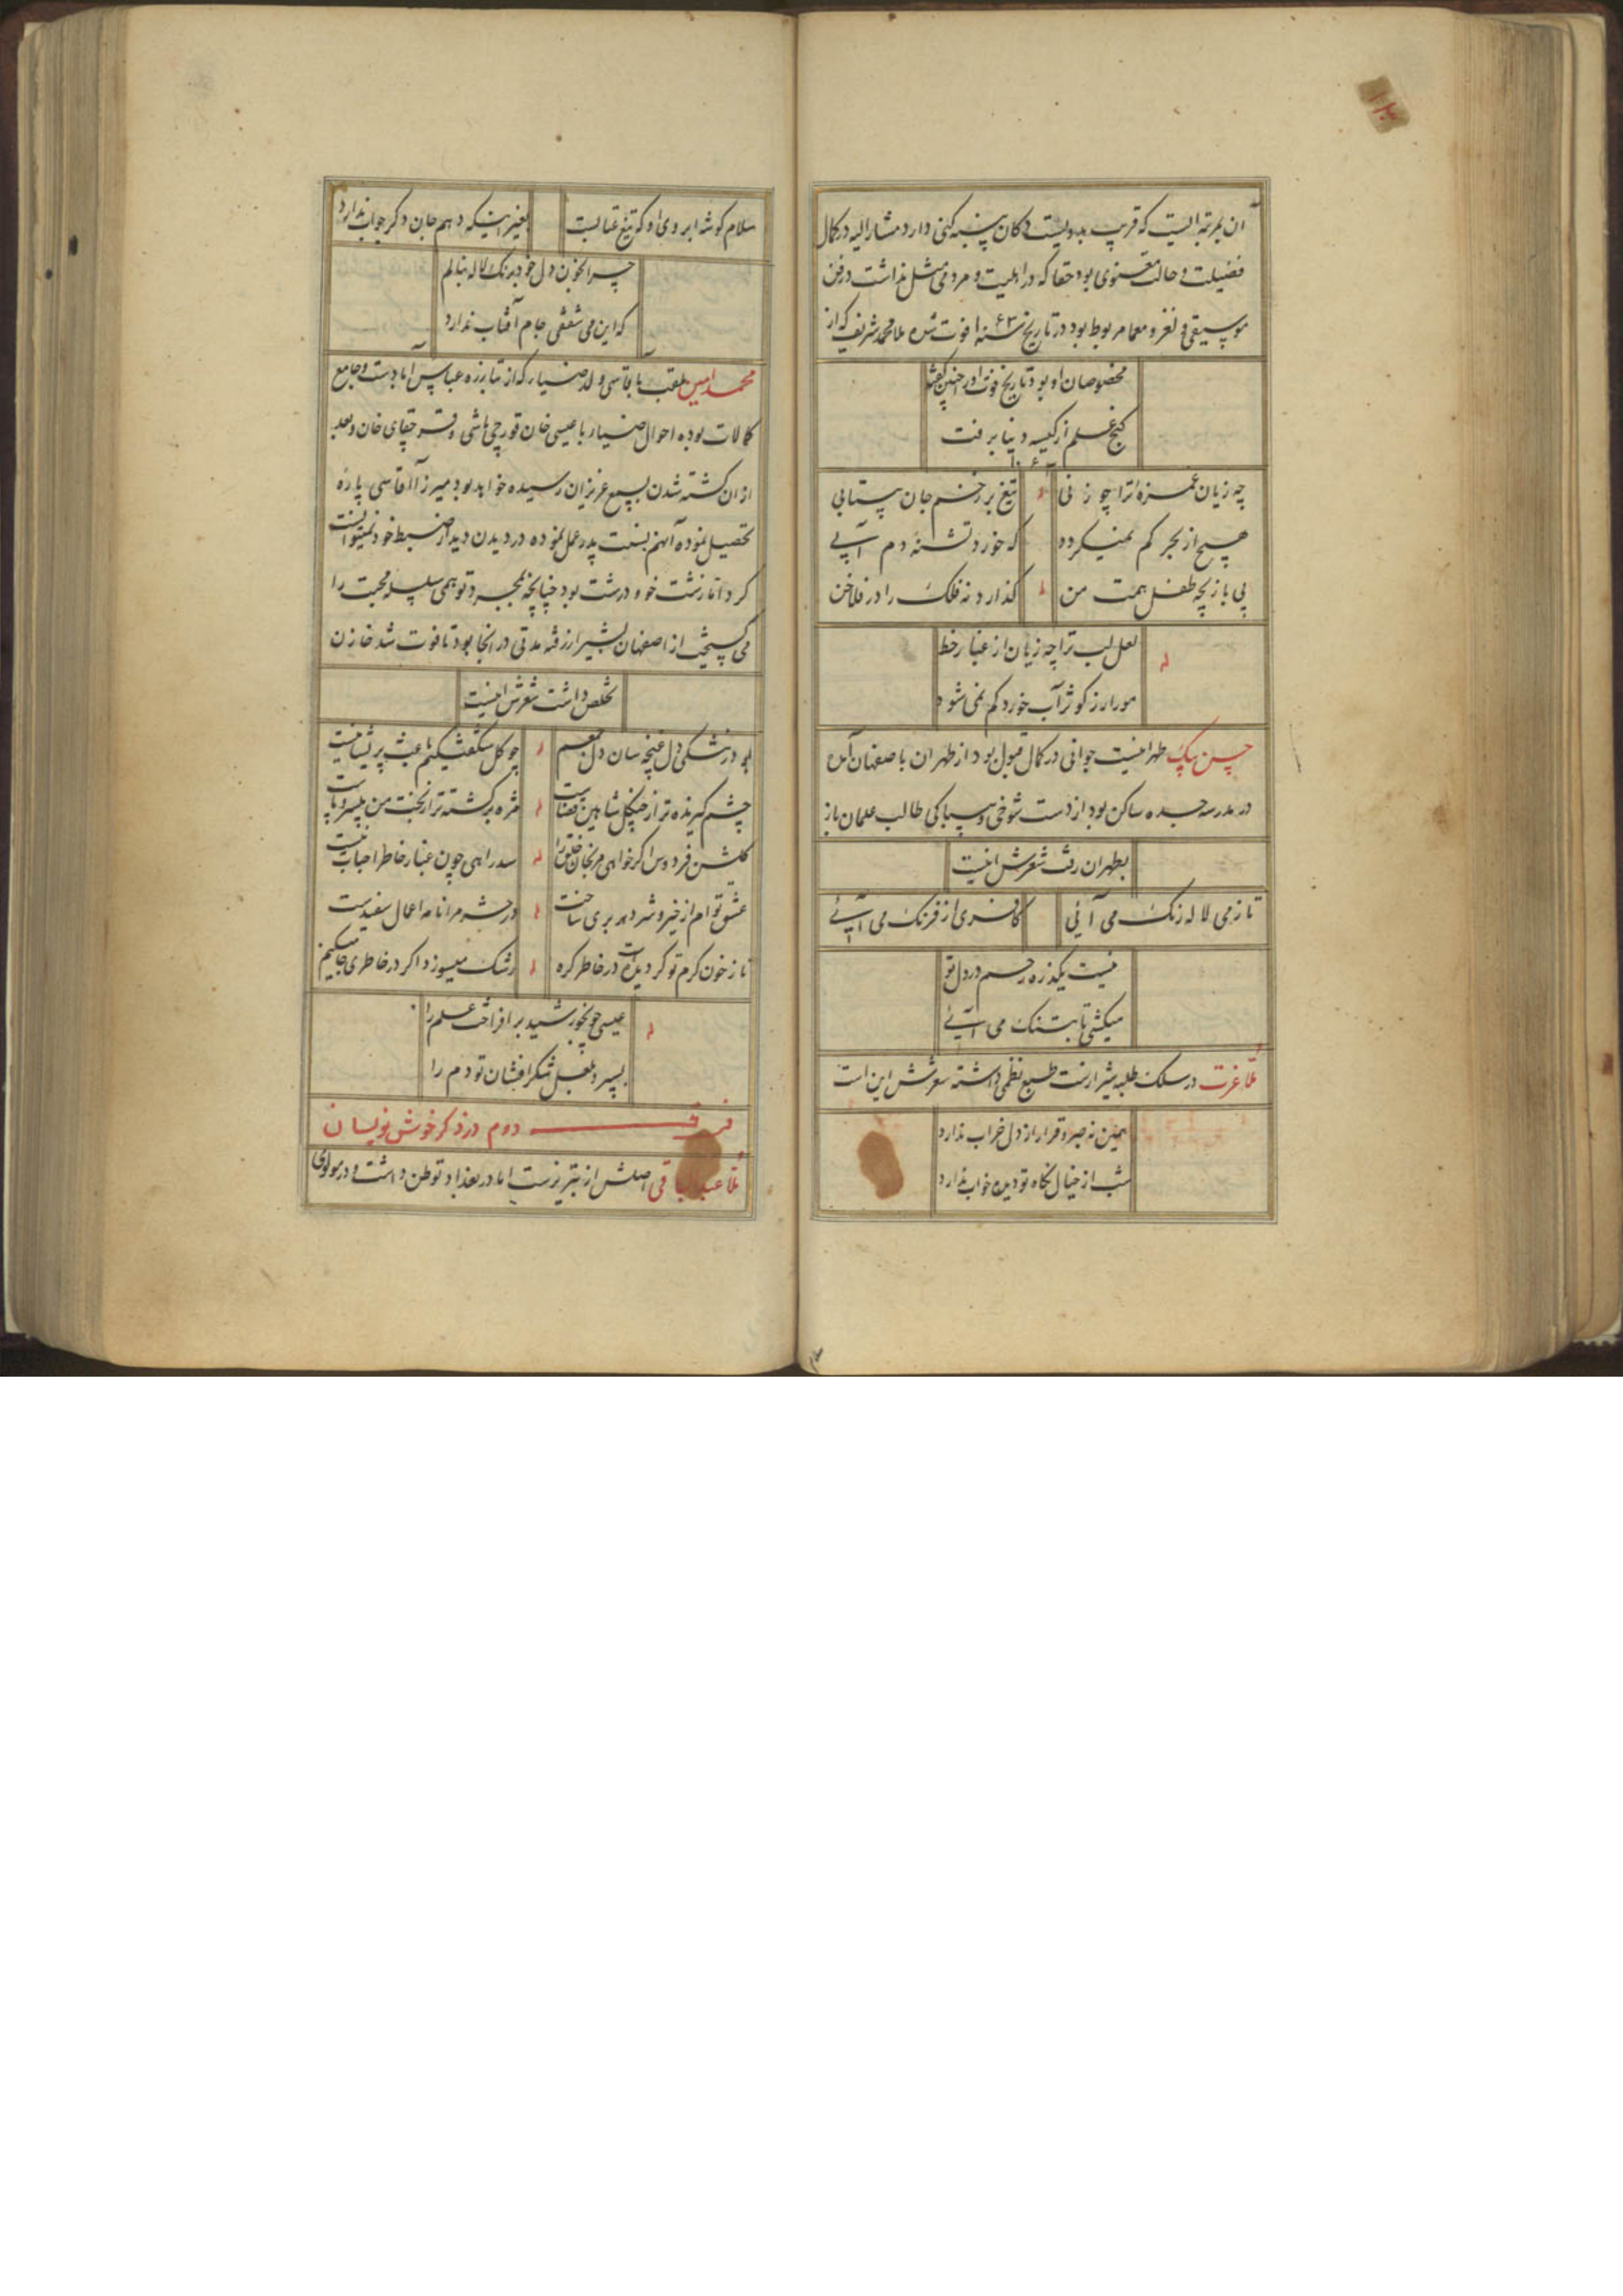 آن بمرتبه ایست که قریب بدویست دکان پنبه کنی دارد مشار الیه در کمال
فضیلت و حالت معنوی بود حقا که در اهلیت و مردمی مثل نداشت در فن
موسیقی و لغز و معما مربوط بود در تاریخ سنه ۱۰۶۳ فوت شده ملا محمد شریف که از
مخصوصان او بود تاریخ فوت او را چنین گفته
گنج علم از کیسه دنیا برفت
چه زیان غمزه ترا چو زنی تیغ بر زخم جان بیتابی
هیچ از بحر کم نمیکردد که خورد تشنه دم آبی
پی بازیچه طفل همت من گذارد نه فلک را در فلاخن
لعل لب ترا چه زیان از غبار خط
مور ار ز کوثر آب خورد کم نمی شود
حسن بیک طهرانیست جوانی در کمال قبول بود از طهران باصفهان آمده
در مدرسه جده ساکن بود از دست شوخی و بیباکی طالب علمان باز
بطهران رفت شعرش اینست
تا ز می لاله رنک می آئی کافری از فرنک می آیی
نیست یکذره رحم در دل تو
میکشی تا بتنک می آیی
ملا عزت در سلک طلبه شیرازست طبع نظمی داشته شعرش این است
همین نه صبر و قرار از دل خراب ندارد
شب از خیال نگاه تو دیده خواب ندارد
سلام گوشه ابروی او که تیغ عتابست بغیر اینکه دهم جان دگر جواب ندارد
چرا بخون دل خود برنک لاله ننالم
که این می شفقی جام آفتاب ندارد
محمد امین ملقب بآقاسی ولد صفیار که از تبارزه عباس آبادست و جامع
کمالات بوده احوال صفیار با عیسی خان قورچی باشی و قرچقای خان و بعد
ازان کشته شدن بسمع عزیزان رسیده خواهد بود میرزا آقاسی پاره
تحصیل نموده آنهم بسنت پدر عمل نموده در دیدن دیدار ضبط خود نمیتوانست
کرد اما زشت خو و درشت بود چنانچه بمجرد توهمی سلسله محبت را
می کسیخت از اصفهان بشیراز رفته مدتی در آنجا بود تا فوت شد خازن
تخلص داشت شعرش اینست
بود در تنگی دل غنچه سان دل جمعیم چو کل شکفتگیم باعث پریشانیست
چشم گیرنده تر از چنگل شاهین قضاست مژه برکشته تر از بخت من بیسر و پاست
کلشن فردوس اگر خواهی مرنجان خلق را سد راهی چون غبار خاطر احباب نیست
عشق توام از خیر و شر دهر بری ساخت در حشر مرا نامه اعمال سفیدست
تا ز خون کرم تو کردیده است در خاطر کره رشک میسوزد اگر در خاطری جا میکنیم
عیسی چو بخورشید بر افراخت علم را
بسپرد بلعل شکر افشان تو دم را
فرقه دوم در ذکر خوش نویسان
ملا عبدالباقی اصلش از تبریزست اما در بغداد توطن داشت و در مولوی